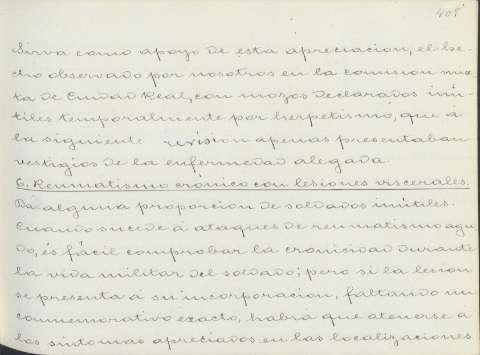 401
Sirva como apoyo de esta apreciacion, el he-
cho observado por nosotros en la comision mix-
ta de Ciudad Real, con mozos declarados inú-
tiles temporalmente por herpetismo, que á
la siguiente revision apenas presentaban
vestigios de la enfermedad alegada.
6. Reumatismo crónico con lesiones viscerales.
Dá alguna proporcion de soldados inútiles.
Cuando sucede á ataques de reumatismo agu-
do, és fácil comprobar la cronicidad durante
la vida militar del soldado; pero si la lesion
se presenta á su incorporacion, faltando un
conmemorativo exacto, habrá que atenerse á
los síntomas apreciados en las localizaciones